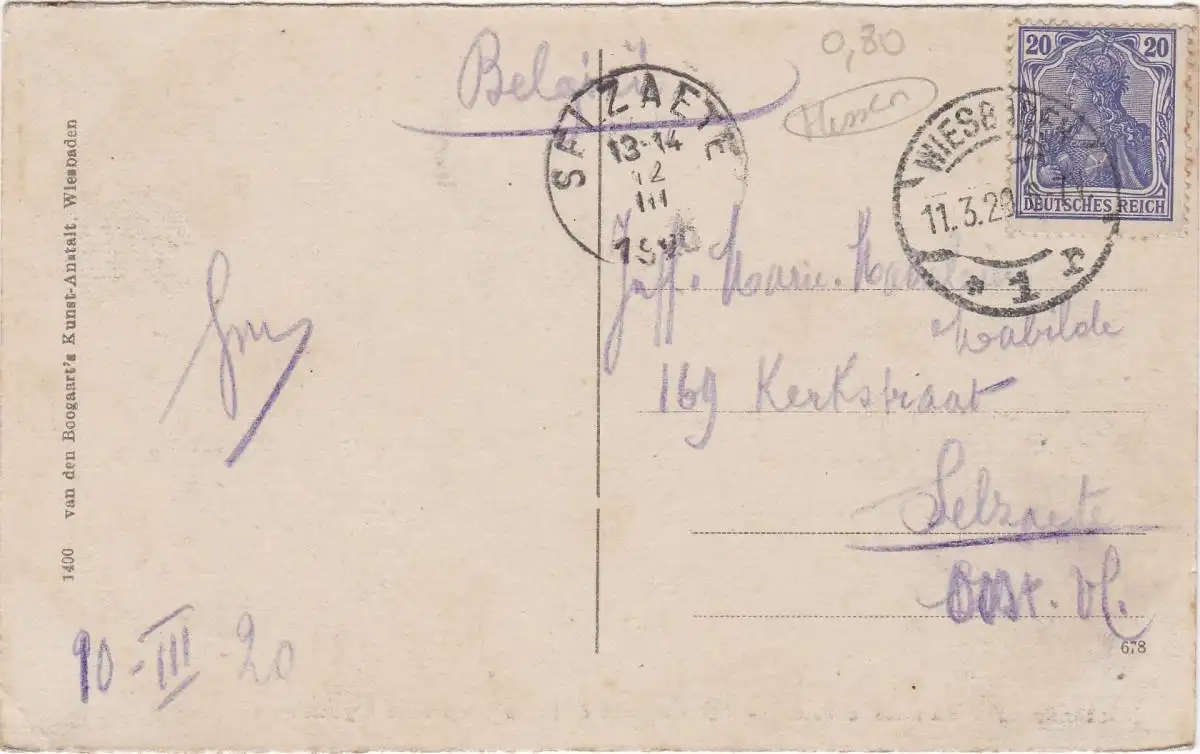 België
0,80
Hessen
20 20
DEUTSCHES REICH
WIESBADEN
11.3.20
* 1 r
SELZAETE
13-14
12
III
1920
Juff. Marie. Madeleine
Mabilde
169 Kerkstraat
Selzaete
Oost. Vl.
678
10-III-20
1400 van den Boogaart's Kunst-Anstalt, Wiesbaden